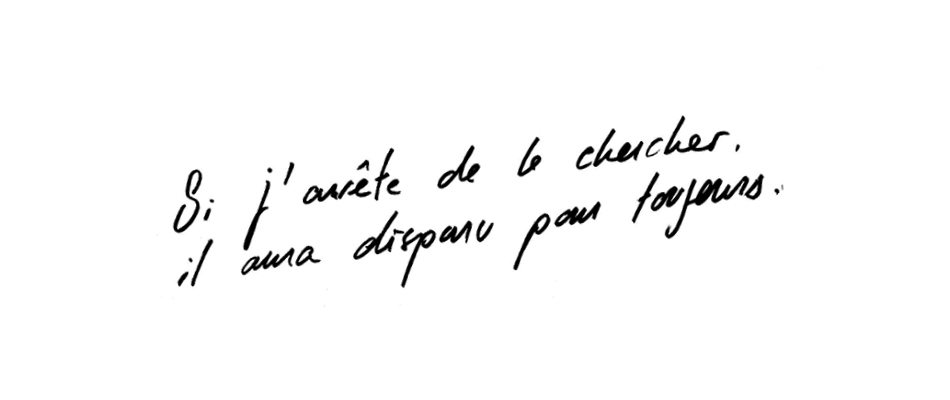 Si j'arrête de le chercher.
il aura disparu pour toujours.